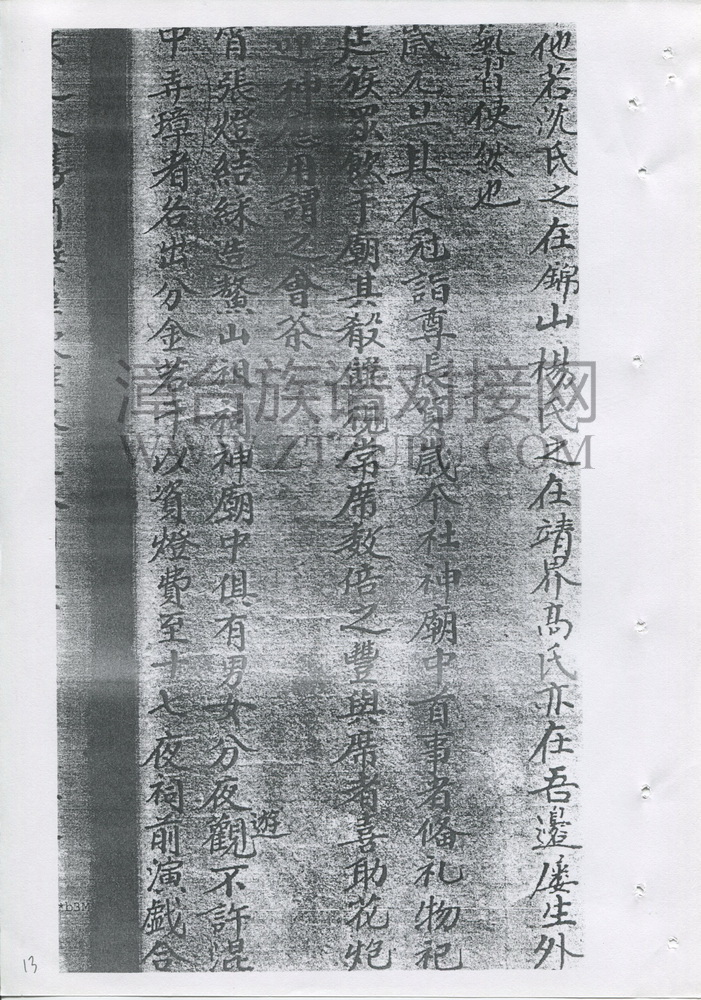 他若沈氏之在錦山楊氏之在靖界高氏亦在吾邊屢生外
氣習使然也
歲元旦具衣冠詣尊長賀歲本社神廟中首事者俻礼物祀
廷族眾飲于廟其殽饌視常席数倍之豐與席者喜助花炮
迎神応用謂之會茶
宵張燈結綵造鰲山祖祠神廟中俱有男女分夜觀遊不許混
中弄璋者各出分金若干以資燈費至十七夜祠前演戯合
漳台族谱对接网
WWW.ZTZUPU.COM
13